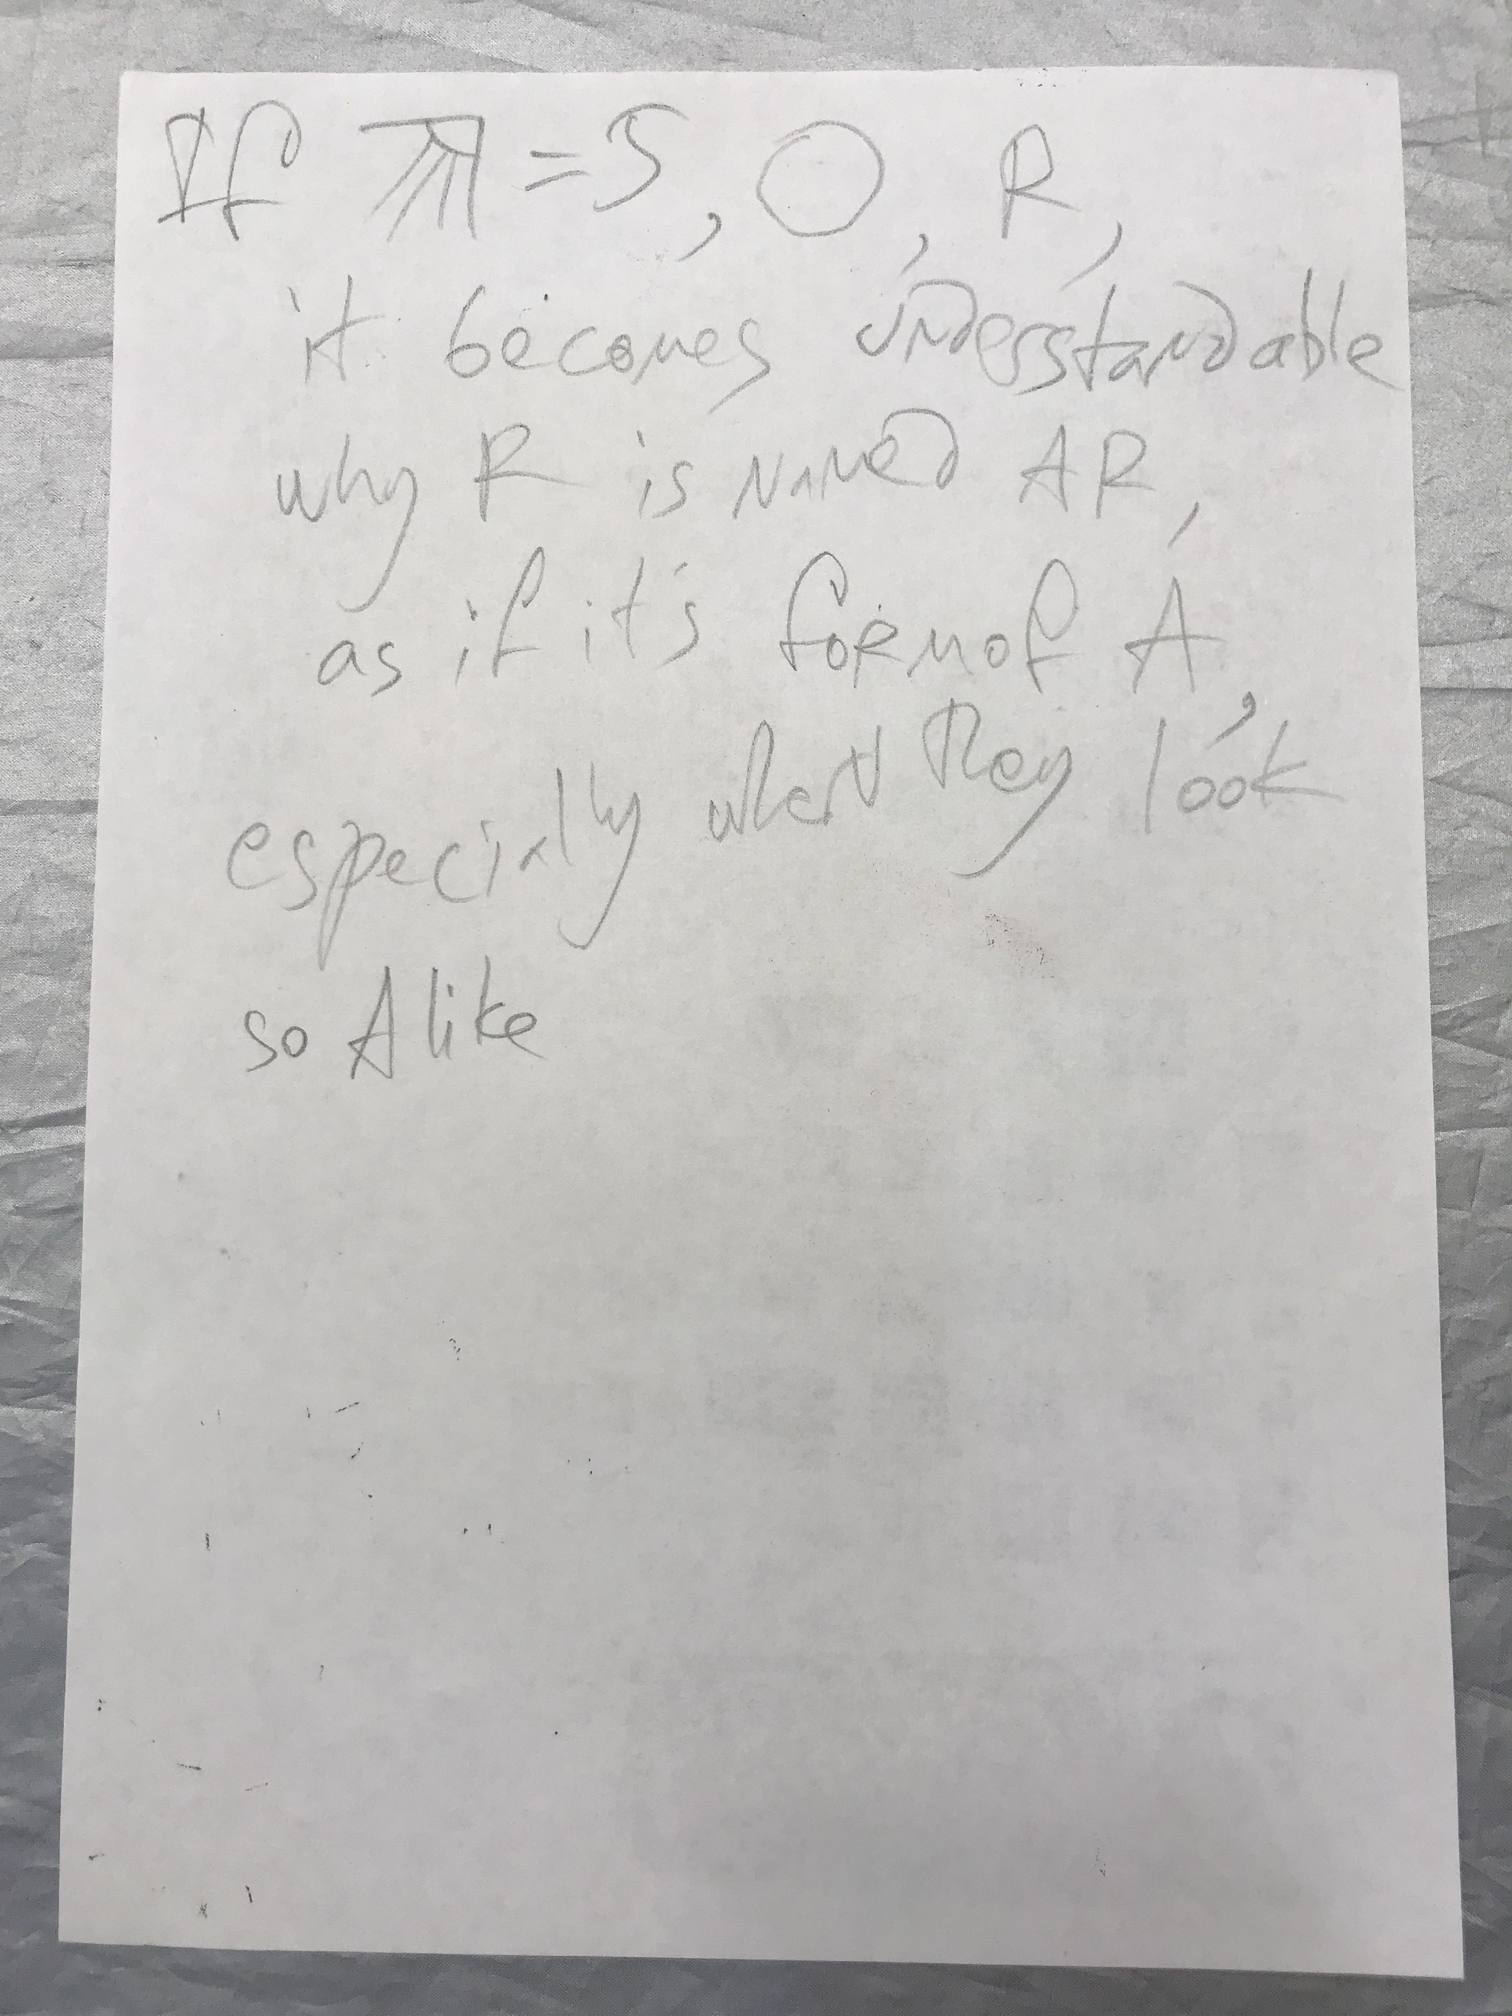 If 𐡌 =5, O, R,
it becomes understandable
why R is named AR,
as if it's form of A,
especially when they look
so Alike